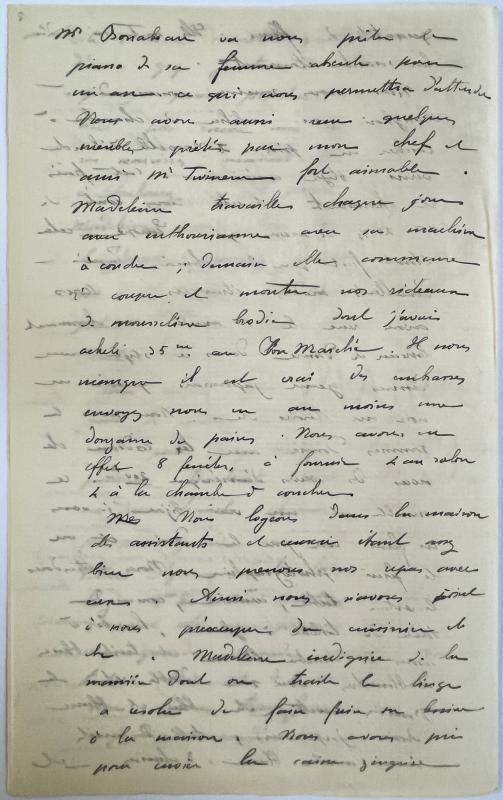 Mr va nous prêter le
piano de sa femme absente pour
un an ce qui nous permettra d'attendre
Nous avons aussi reçu quelques
meubles prêtés par mon chef et
ami Mr fort aimable.
Madeleine travaille chaque jour
avec enthousiasme avec sa machine
à coudre ; demain elle commence
à couper et monter nos rideaux
de mousseline brodée dont j'avais
acheté 35 m au Bon Marché. Il nous
manque il est vrai des embrasses
envoyez nous en au moins une
douzaine de paires. Nous avons en
effet 8 fenêtres, à fournir 4 au salon
4 à la chambre à coucher
Nous logeons dans la maison
des assistants et ceux-ci étant assez
bien nous prenons nos repas avec
eux. Ainsi nous n'avons point
à nous préoccuper du cuisinier et
. Madeleine indignée de la
manière dont on traite le linge
a résolu de faire faire sa lessive
à la maison. Nous avons pris
pour la